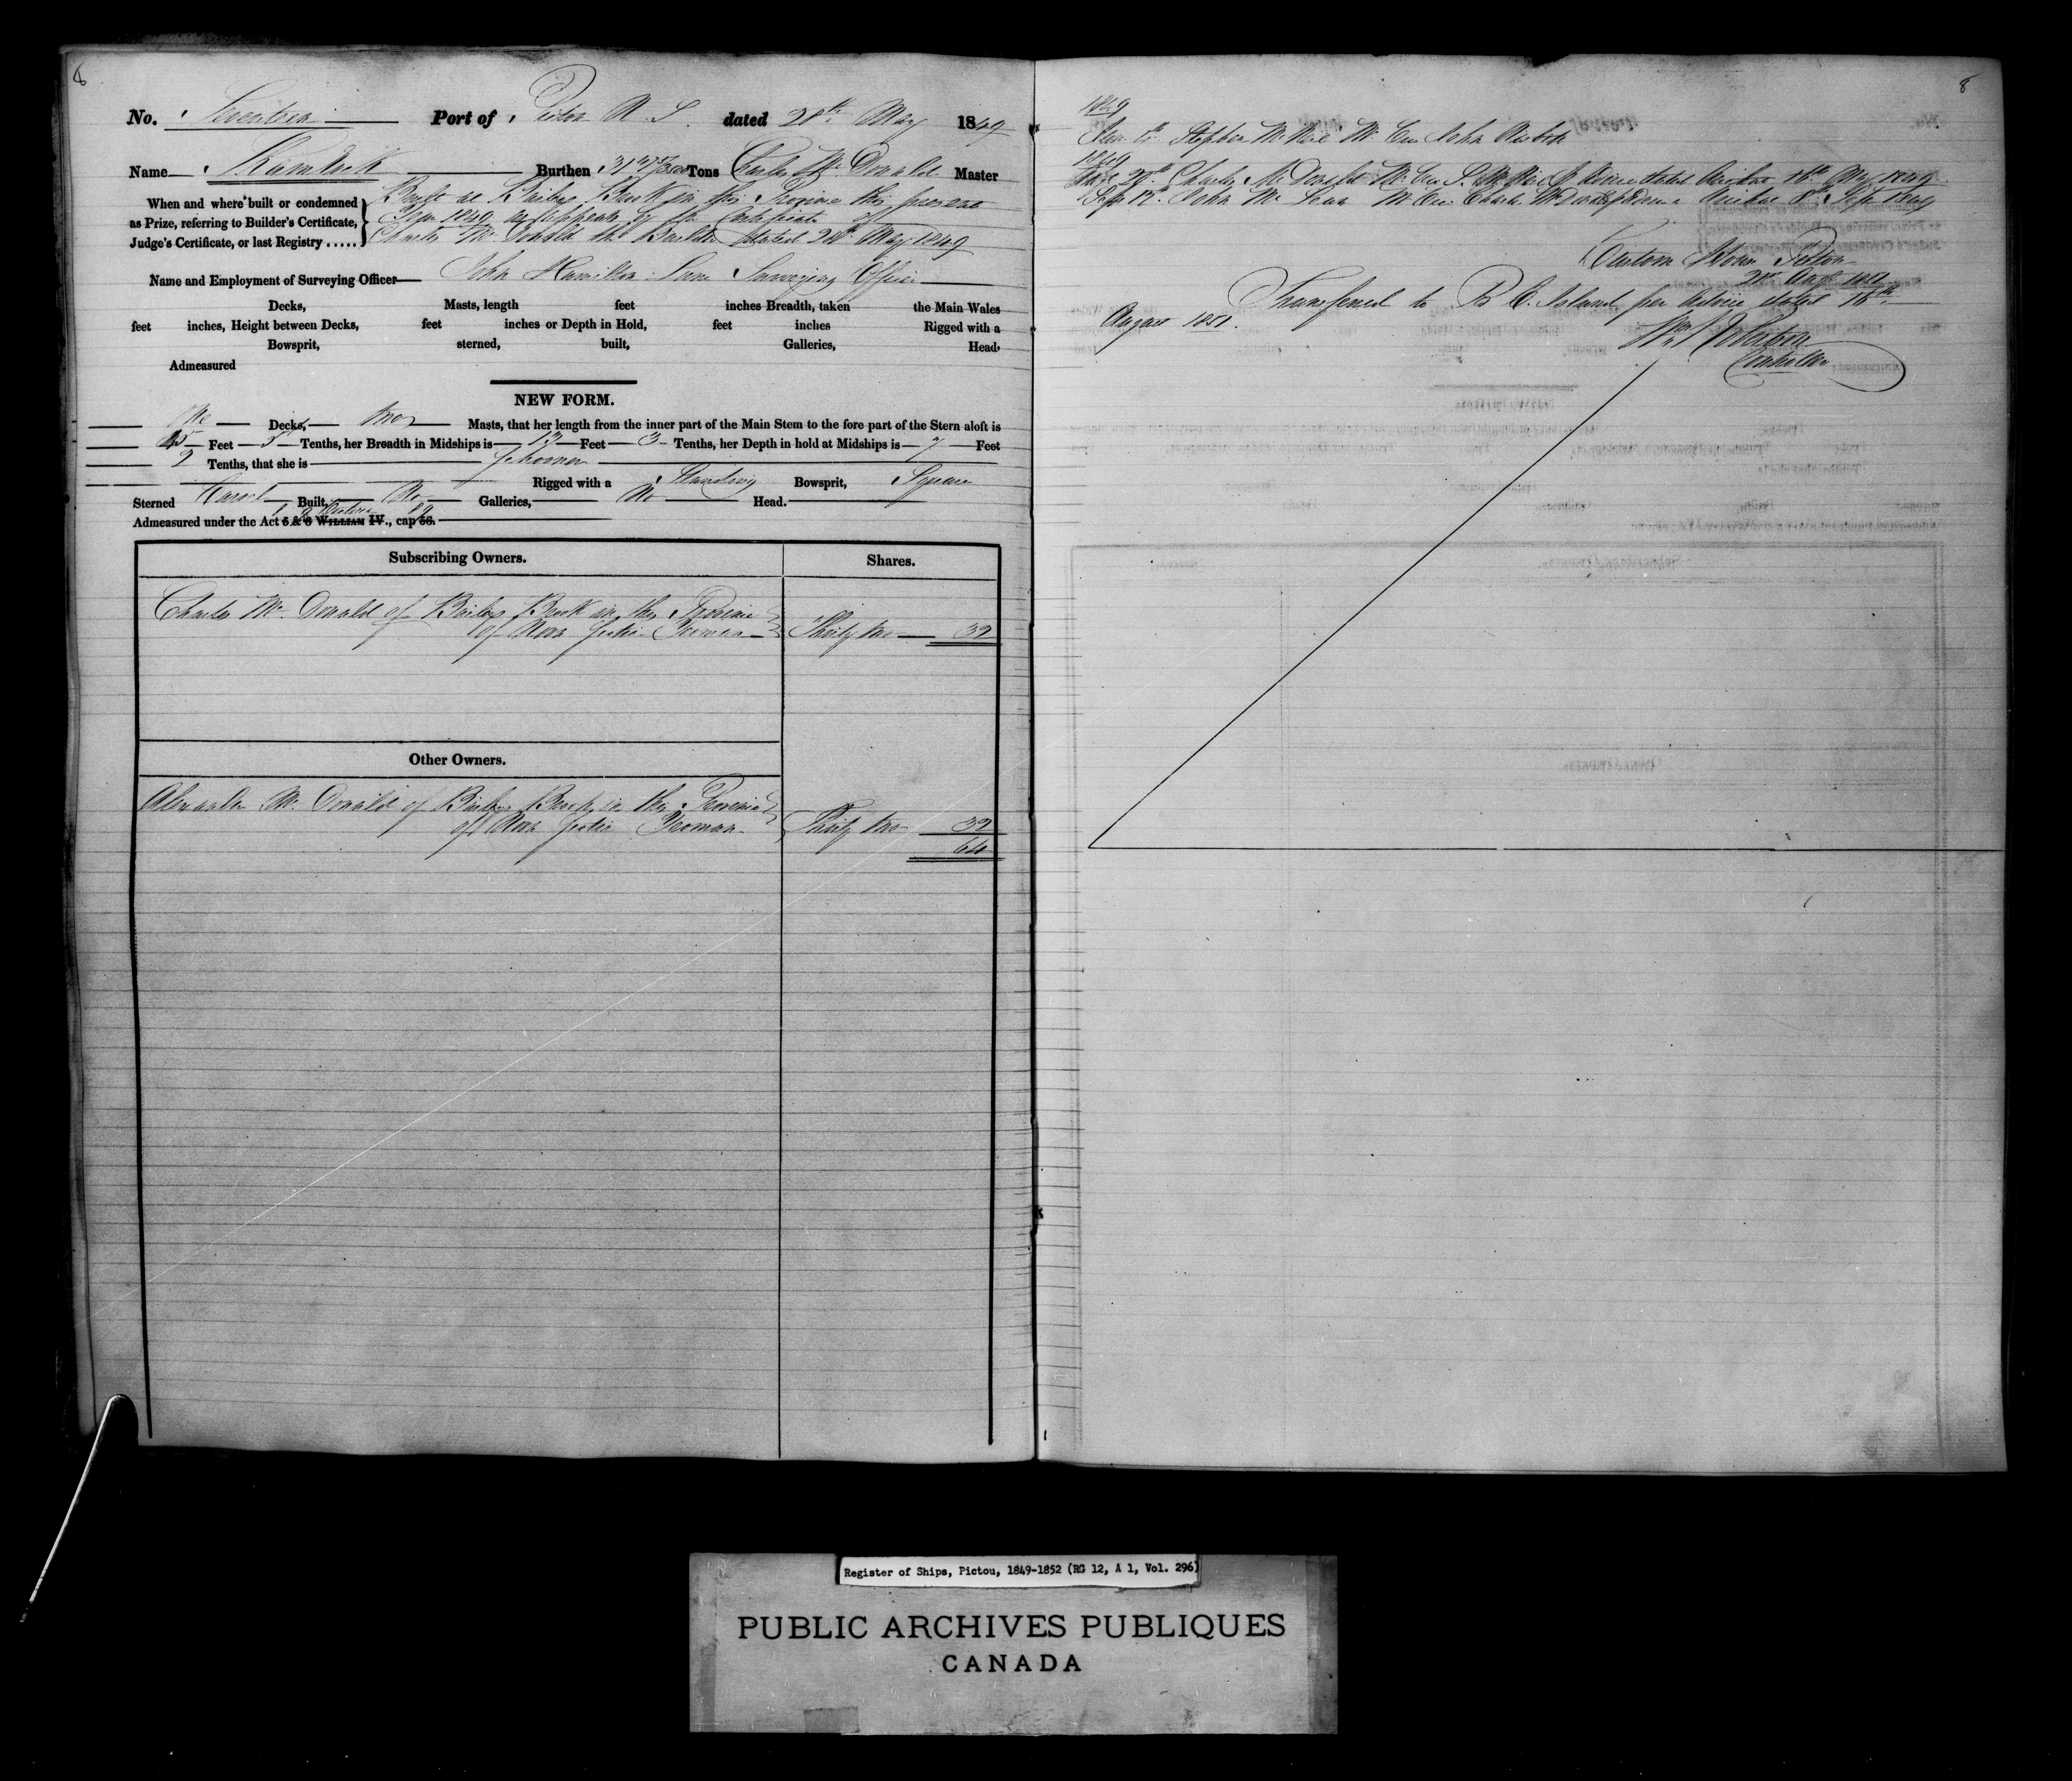 8
No. Seventeen Port of Pictou N. S. dated 28th May 1849
Name Shamrock Burthen Tons Charles Mc Donald Master
When and where built or condemned
as Prize, referring to Builder's Certificate,
Judge's Certificate, or last Registry .....
Built at Baileys Brook in this Province this present
Year 1849 as appears by the Certificate of
Charles Mc Donald the Builder dated May 1849
Name and Employment of Surveying Officer John Hamilton Surveying Officer
Decks, Masts, length feet inches Breadth, taken the Main Wales
feet inches, Height between Decks, feet inches or Depth in Hold, feet inches Rigged with a
Bowsprit, sterned, built, Galleries, Head,
Admeasured
NEW FORM.
One Decks, two Masts, that her length from the inner part of the Main Stem to the fore part of the Stern aloft is
45 Feet 5 Tenths, her Breadth in Midships is 13 Feet 3 Tenths, her Depth in hold at Midships is 7 Feet
2 Tenths, that she is Schooner
Rigged with a Standing Bowsprit, Square
Sterned Carvel Built, No Galleries, No Head.
Admeasured under the Act 5 & 6 WILLIAM IV., cap 56.
Subscribing Owners. Shares.
Charles Mc Donald of Baileys Brook in this Province
of Nova Scotia Yeoman Thirty two 32
Other Owners.
Alexander Mc Donald of Baileys Brook in this Province
of Nova Scotia Yeoman Thirty two 32
64
8
1849
Stephen Mc Neil John
1849
27th Charles McDonald May 1849
Sept 12. John Mc Charles McDonald 8th Sept 1849
Custom House Pictou
21st Augt 1851
Transferred to P E. Island per Advice dated 16th
August 1851.
Controller
Register of Ships, Pictou, 1849-1852 (RG 12, A 1, Vol. 296)
PUBLIC ARCHIVES PUBLIQUES
CANADA